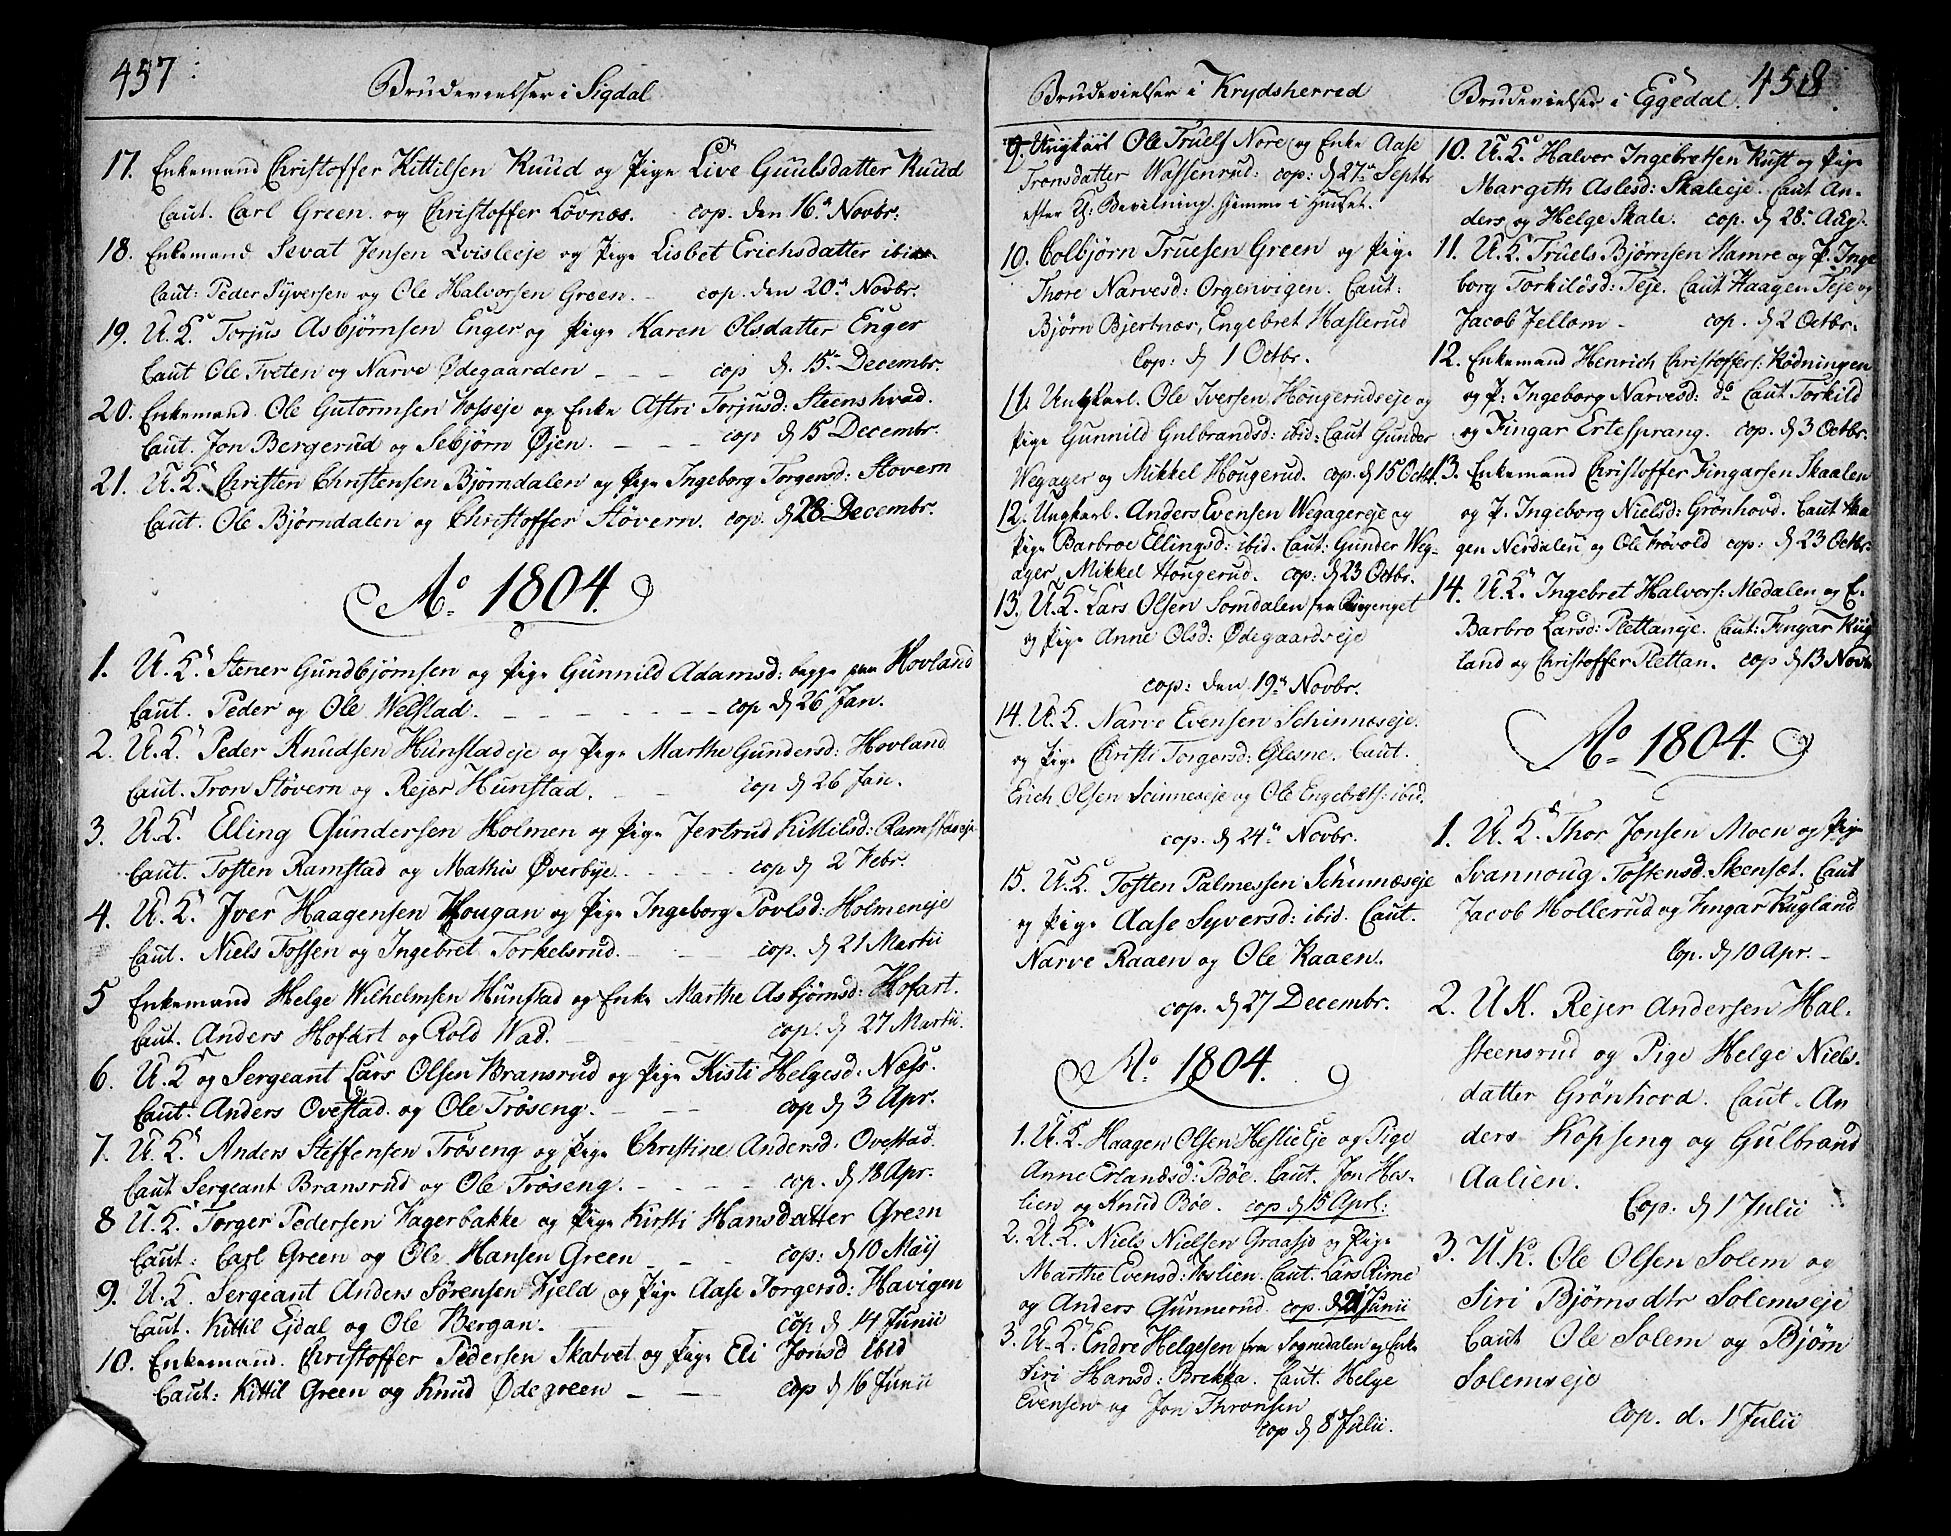 457
Brudevielser i Sigdal
17. Enkemand Christoffer Kittilsen Ruud og Pige Live Guulsdatter Ruud
Caut. Carl Green og Christoffer Løvnæs. cop. den 16n Novbr.
18. Enkemand Sevat Jensen Qvisleeje og Pige Lisbet Erichsdatter ibid.
Caut: Peder Syversen og Ole Halvorsen Green. cop. den 20n Novbr.
19. U. K. Torjus Asbjørnsen Enger og Pige Karen Olsdatter Enger
Caut Ole Tveten og Narve Ødegaarden cop d. 15n Decembr.
20. Enkemand Ole Gutormsen Fosseje og Enke Astri Torjusd: Steenshvad.
Caut. Jon Bergerud og Sebjørn Øjen. cop d 15 Decembr.
21. U. K. Christen Christensen Bjørndalen og Pige Ingeborg Torgersd: Støvern
Caut. Ole Bjørndalen og Christoffer Støvern. cop. d 28 Decembr.
Ao 1804.
1. U. K. Stener Gundbjørnsen og Pige Gunnild Adamsd: begge paa Hovland
Caut. Peder og Ole Welstad. cop d 26 Jan.
2. U. K. Peder Knudsen Hunstadeje og Pige Marthe Gundersd: Hovland
Caut. Tron Støvern og Rejer Hunstad. cop d 26 Jan.
3. U. K. Elling Gundersen Holmen og Pige Jertrud Kittilsd: Ramstadeje
Caut. Tosten Ramstad og Mathis Øverbye. cop d 2 Febr.
4. U. K. Iver Haagensen Hougan og Pige Ingeborg Povlsd: Holmeneje
Caut. Niels Fossen og Ingebret Torkelsrud. cop. d 21 Martii
5 Enkemand Helge Wilhelmsen Hunstad og Enke Marthe Asbjørnsd: Hofart.
Caut. Anders Hofart og Rold Wad. cop: d 27 Martii.
6. U. K og Sergeant Lars Olsen Bransrud og Pige Kisti Helgesd. Næss.
Caut. Anders Ovestad og Ole Trøseng. cop d 3 Apr.
7. U. K. Anders Steffensen Trøseng og Pige Christine Andersd. Ovestad.
Caut Sergeant Bransrud og Ole Trøseng. cop. d 18 Apr.
8 U. K. Torger Pedersen Hagerbakke og Pige Kirsti Hansdatter Green
Caut: Carl Green og Ole Hansen Green cop: d 10 Maij
9. U. K. Sergeant Anders Sørensen Fjeld og Pige Aase Torgersd: Havigen
Caut. Kittil Ejdal og Ole Bergan. cop d 14 Junii
10. Enkemand. Christoffer Pedersen Skatvet og Pige Eli Jonsd ibid
Caut: Kittil Green og Knud Ødegreen cop d 16 Junii
Brudevielser i Krydsherred
9. Ungkarl Ole Truels Nore og Enke Aase
Tronsdatter Wassenrud. cop: d 27n Septbr
efter K: Bevilning hjemme i Huset.
10. Colbjørn Truesen Green og Pige
Thore Narvesd: Orgenvigen. Caut:
Bjørn Bjertnæs, Engebret Haslerud
Cop: d 1 Octbr.
11. Ungkarl. Ole Iversen Hougerudseje og
Pige Gunnild Gulbrandsd: ibid: Caut Gunder
Wegager og Mikkel Hougerud. cop. d 15 Octbr
12. Ungkarl. Anders Evensen Wegagereje og
Pige Barbroe Ellingsd: ibid. Caut: Gunder Weg-
ager, Mikkel Hougerud. cop: d 23 Octbr.
13. U. K. Lars Olsen Somdalen fra Ringeriget
og Pige Anne Olsd: Ødegaardseje
cop: den 19n Novbr.
14. U. K. Narve Evensen Schinnæseje.
og Pige Christi Torgersd: Glesne. Caut.
Erich Olsen Scinneseje og Ole Engebrets: ibid.
cop. d 24n Novbr.
15. U. K. Tosten Palmessen Schinnæseje
og Pige Aase Syversd: ibid. Caut.
Narve Raaen og Ole Raaen.
cop. d 27 Decembr.
Ao 1804.
1. U. K. Haagen Olsen Heslie Eje og Pige
Anne Erlandsd: Bøe. Caut. Jon Hes-
lien og Knud Bøe. cop d 15 Aprl:
2. U. K. Niels Nielsen Graasjø og Pige
Marthe Evensd: Heslien. Caut. Lars Rime
og Anders Gunnerud. cop. d 21 Junii
3. U. K. Endre Helgesen fra Sognedalen og Enke
Siri Hansd: Brekka. Caut. Helge
Evensen og Jon Thronsen
cop d 8 Julii.
Brudevielser i Eggedal. 458
10. U. K. Halvor Ingebretsen Rust og Pige
Margith Aslesd: Skaleeje. Caut An-
ders og Helge Skale. cop. d 28 Aug.
11. U. K. Truels Bjørnsen Hamre og P. Inge
borg Torkildsd: Teje. Caut Haagen Teje og
Jacob Jellom cop. d 2 Octbr.
12. Enkemand Henrich Christoffers: Kødningen
og P: Ingeborg Narvesd: do Caut Torkild
og Fingar Ertesprang. cop. d 3 Octbr.
13. Enkemand Christoffer Fingarsen Skaalen
og P. Ingeborg Nielsd: Grønhovd. Caut Haa
gen Nerdalen og Ole Frøvold cop: d 23 Octbr.
14. U. K. Ingebret Halvors: Medalen og E.
Barbro Larsd: Plettaneje. Caut: Fingar Kug
land og Christoffer Plettan. cop d 13 Novb
Ao 1804.
1. U. K. Thor Jonsen Moen og Pige
Svannoug Tostensd. Skenset. Caut
Jacob Hollerud og Fingar Kugland
Cop. d 10 Apr.
2. U. K. Rejer Andersen Hal-
steensrud og Pige Helge Niels-
datter Grønhovd. Caut. An
ders Kopseng og Gulbrand
Aalien.
Cop. d 1 Julii
3. U. K. Ole Olsen Solem og
Siri Bjørnsdtr Solemseje
Caut Ole Solem og Bjørn
Solemseje
Cop. d. 1 Julii